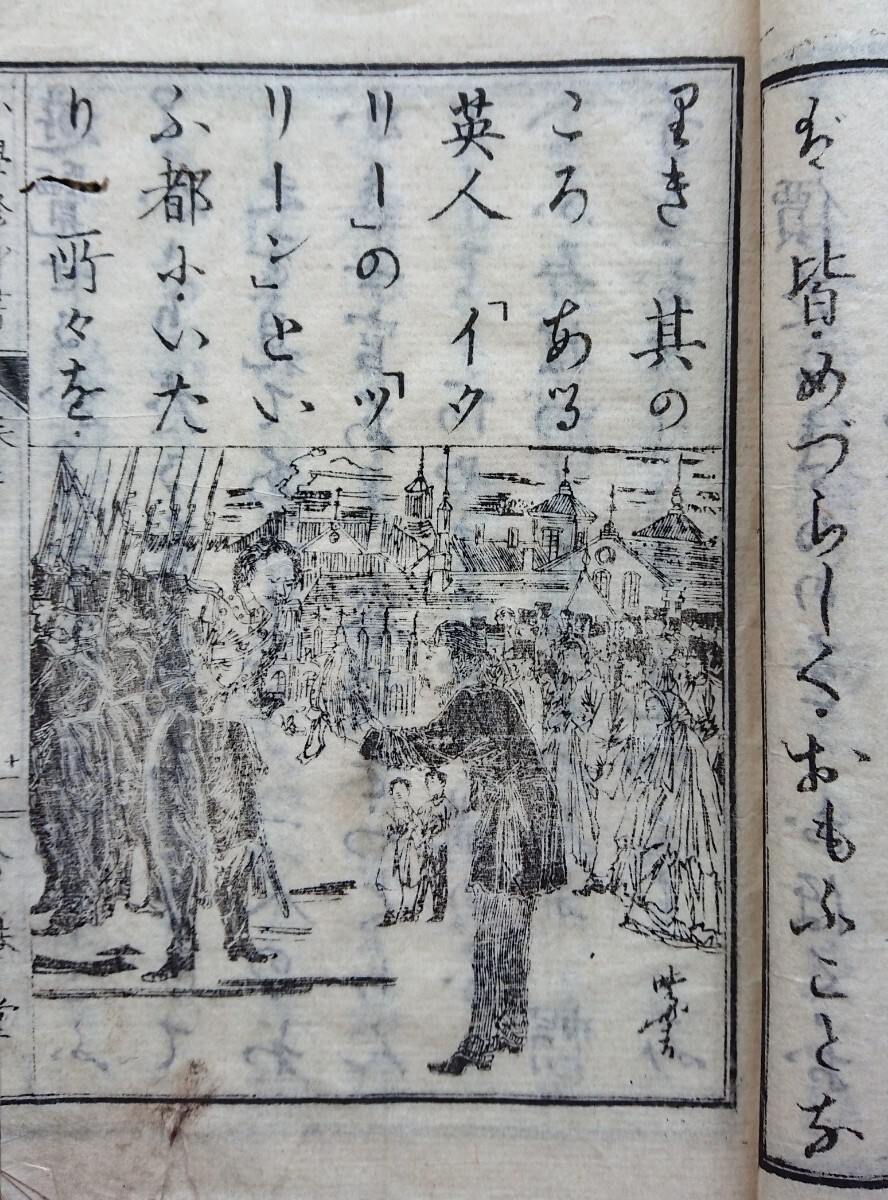 皆・めづらしく・おもふことな
里き 其の
ころ ある
英人 「イタ
リー」の 「ツ
リーン」とい
ふ都に・いた
り 所々を・